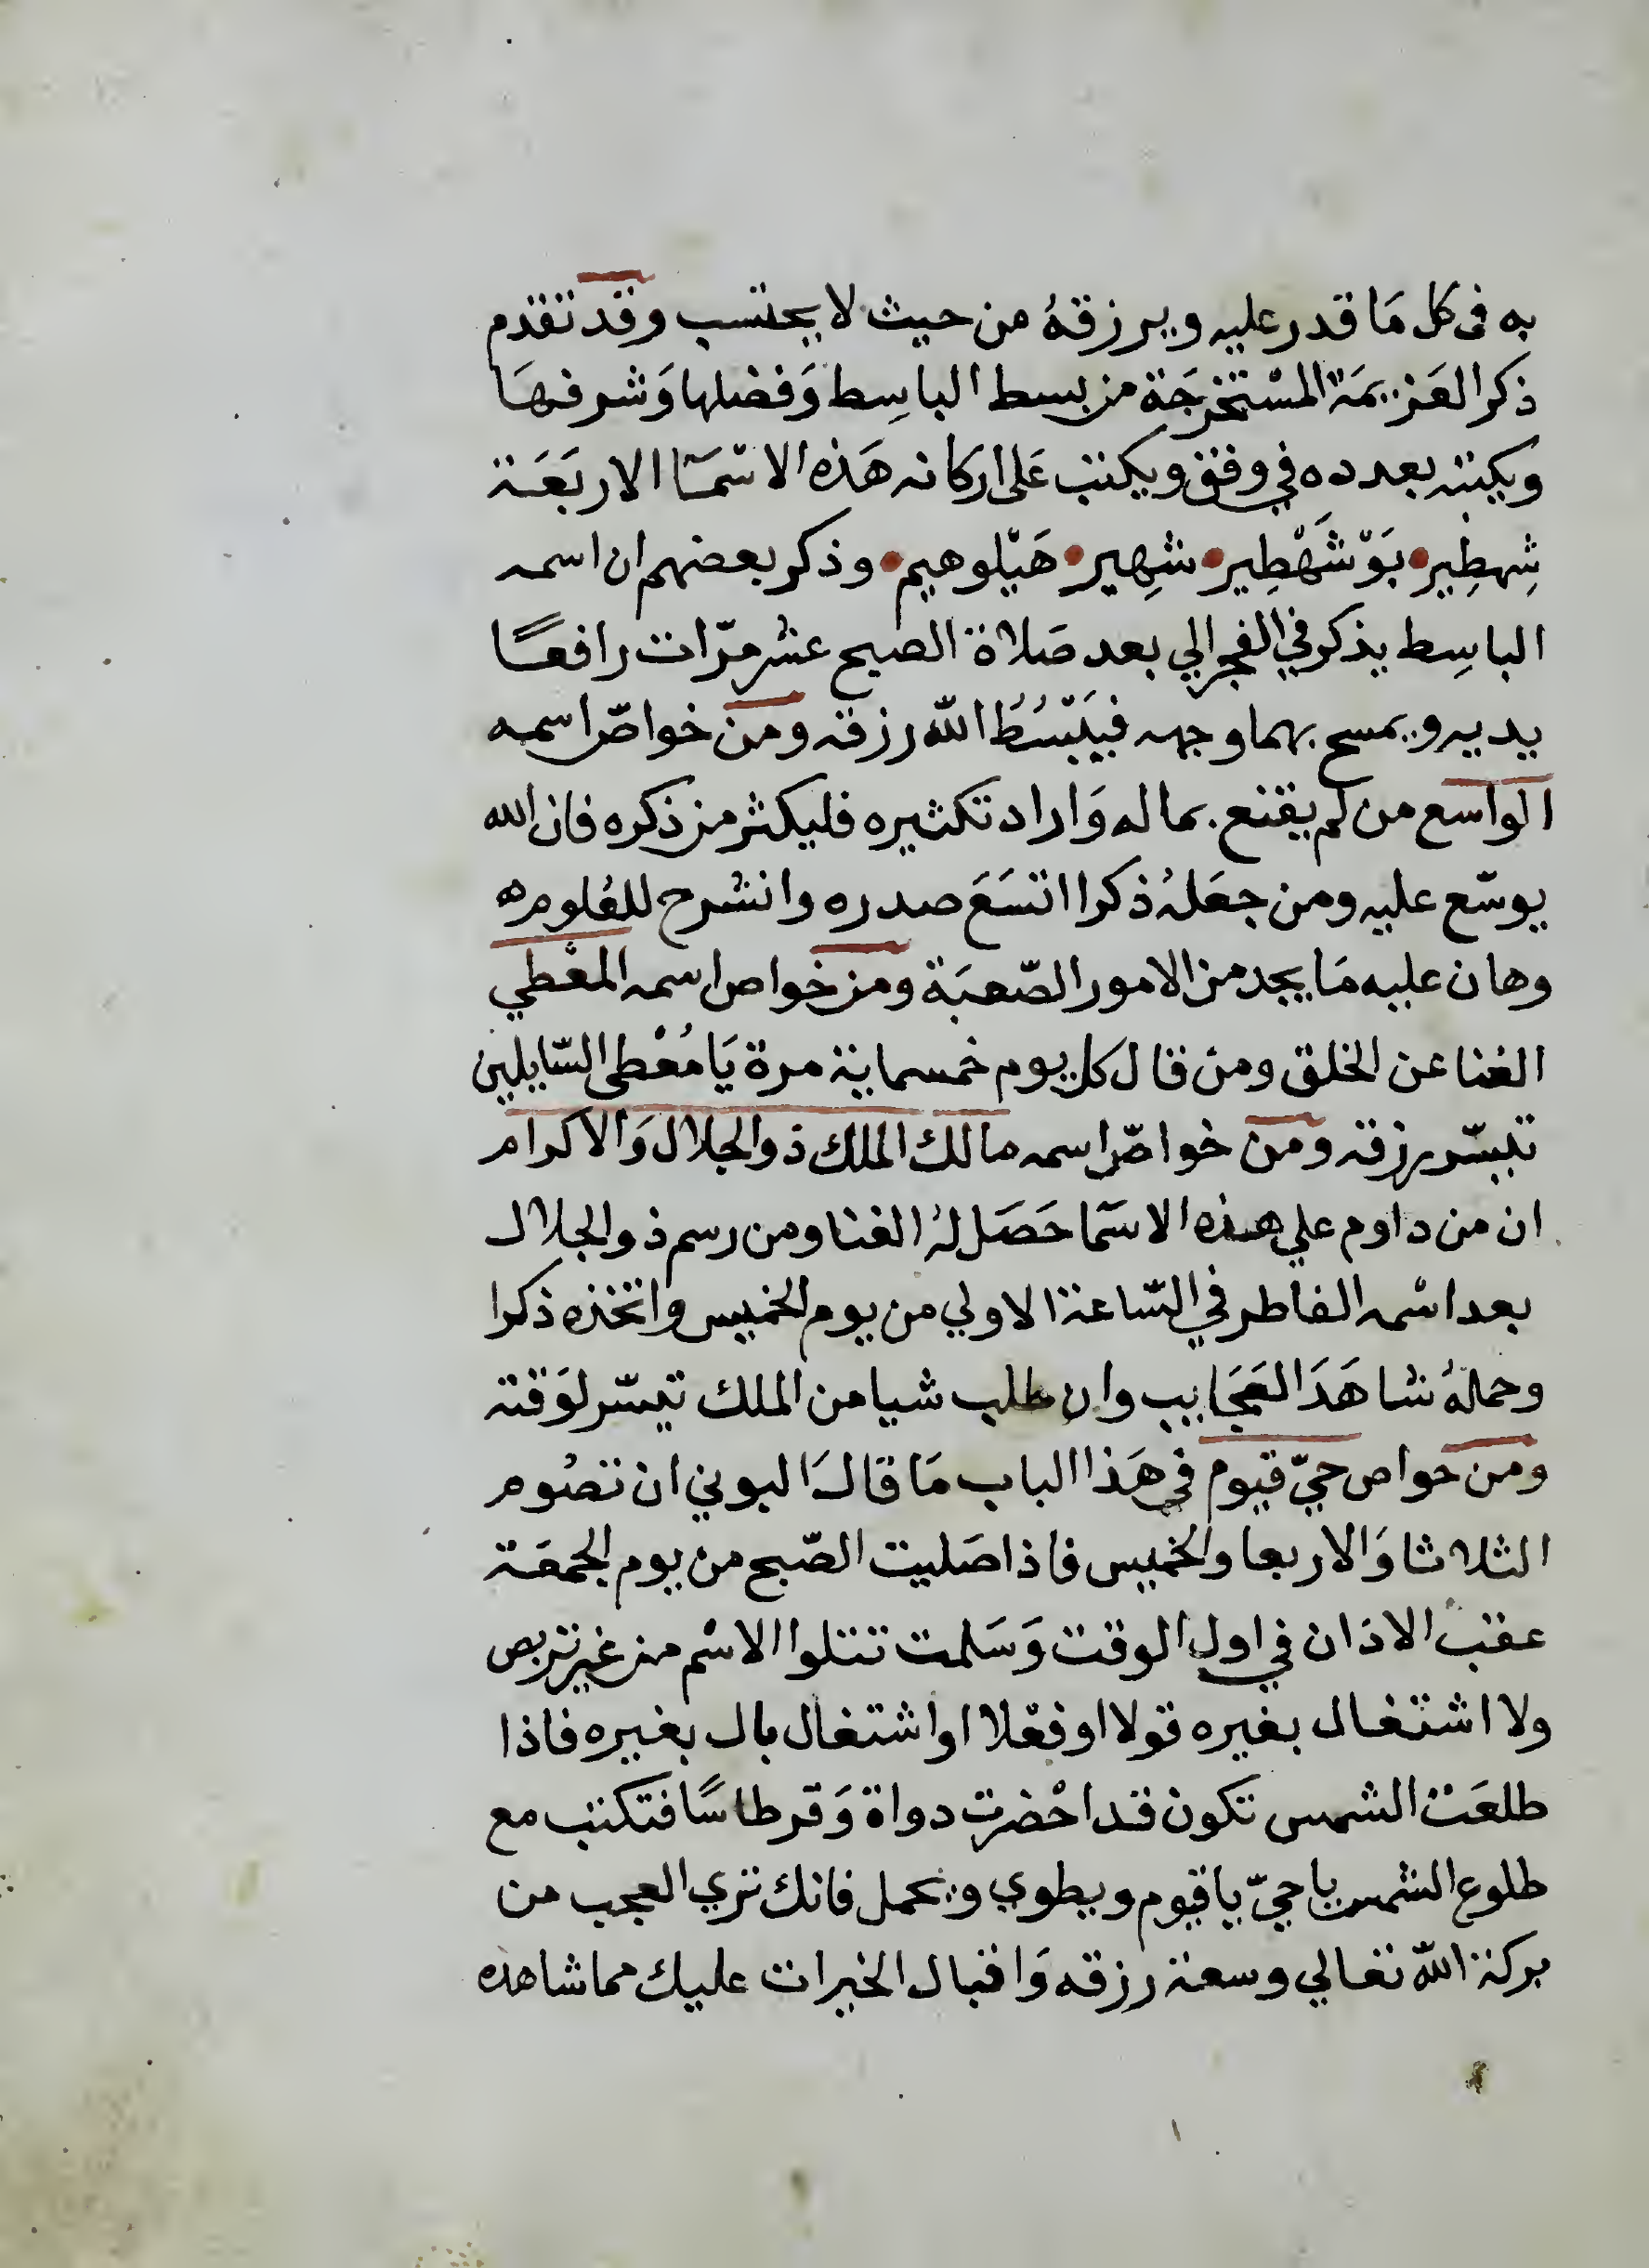 به فى كل مَا قدر عليه ويرزقهُ من حيث لا يحتسب وقد تقدم
ذكر العَزيمَة المسْتخرجَة من بسط الباسِط وَفضلها وَشرفهَا
ويكتبه بعدده في وفق ويكتب عَلى اركانه هَذه الاسْمَآ الاربَعَة
شِهطِير • بَوْشَهْطِير • شهِير • هَيْلوهيم • وذكر بعضهم ان اسمه
الباسِط يذكر في الفجر الي بعد صَلاة الصبح عشر مرّات رافعًا
يديه ويمسح بهما وجهه فيَبْسُطُ الله رزقه ومن خواصّ اسمه
الواسع من لم يقنع بماله وَاراد تكثيره فليكثر من ذكره فان الله
يوسّع عليه ومن جعَلهُ ذكرا اتسَعَ صدره وانشرح للعُلوم
وهان عليه مَا يجد من الامور الصّعبَة ومن خواص اسمه المعْطي
الغنا عن الخلق ومن قال كل يوم خمسماية مرة يَا مُعْطى السّايلين
تيسّر رزقه ومن خواصّ اسمه مالك الملك ذو الجلال وَالاكرام
ان من داوم علي هذه الاسمَا حَصَل لهُ الغنا ومن رسم ذو الجلال
بعد اسْمه الفاطر في السّاعة الاولي من يوم الخميس واتخذه ذكرا
وحملهُ شاهَدَ العَجَايب وان طلب شيا من الملك تيسّر لوَقته
ومن خواص حيّ قيوم في هَذا الباب مَا قالَ البوني ان تصُوم
الثلاثا وَالاربعا والخميس فاذا صَليت الصّبح من يوم الجمعَة
عقب الاذان في اول الوقت وَسَلمت تتلوا الاسْم من غير تربص
ولا اشتغال بغيره قولا او فعْلا او اشتغال بال بغيره فاذا
طلعَت الشمس تكون قد احْضرت دواة وَقرطاسًا فتكتب مع
طلوع الشمس يا حيّ يا قيوم ويطوي ويحمل فانك تري العجب من
بركة الله تعالي وسعة رزقه وَاقبال الخيرات عليك مما شاهده